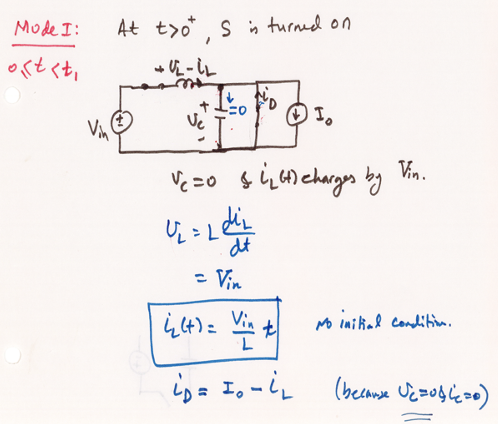 Mode I: At t>0⁺, S is turned on
0≤t<t₁
+ V_L - i_L
V_in
+
V_c
-
=0
i_D
I_o
V_c=0 & i_L(t) charges by V_in.
V_L = L di_L/dt
= V_in
i_L(t) = V_in/L t No initial condition.
i_D = I_o - i_L (because V_c=0 & i_c=0)